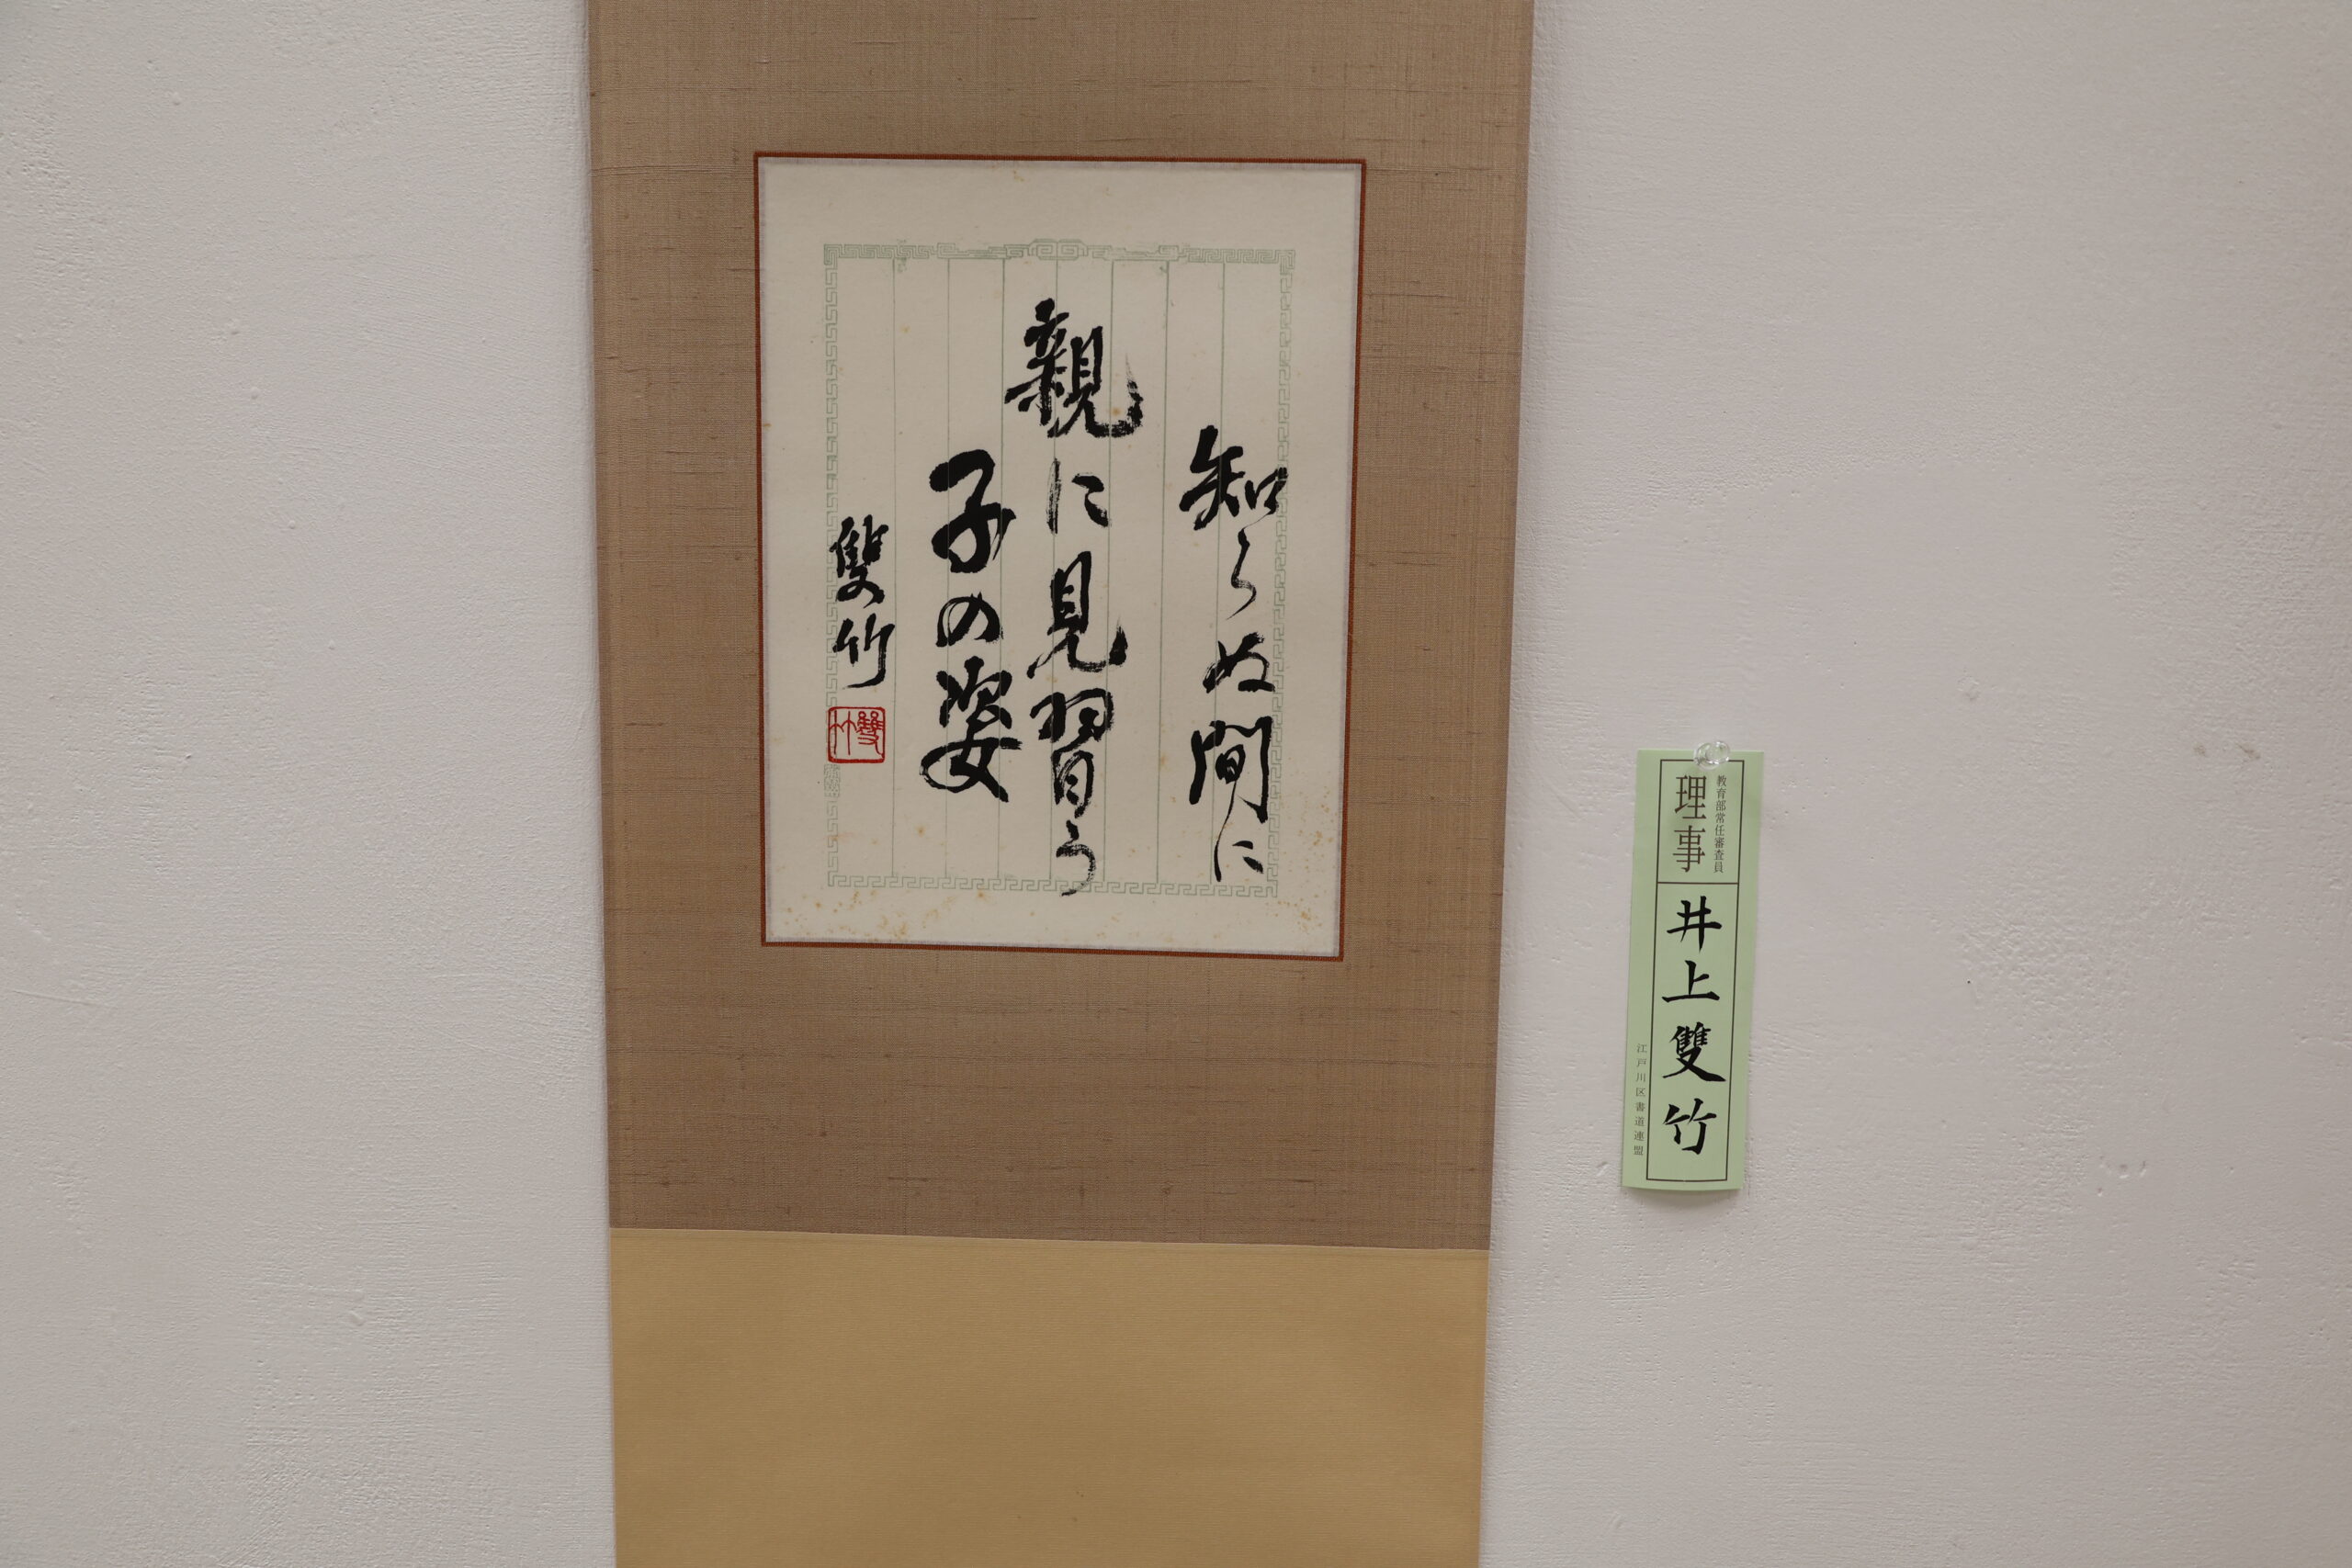 知らぬ間に
親に見習う
子の姿
雙竹
雙竹
教育部常任審査員
理事
井上雙竹
江戸川区書道連盟